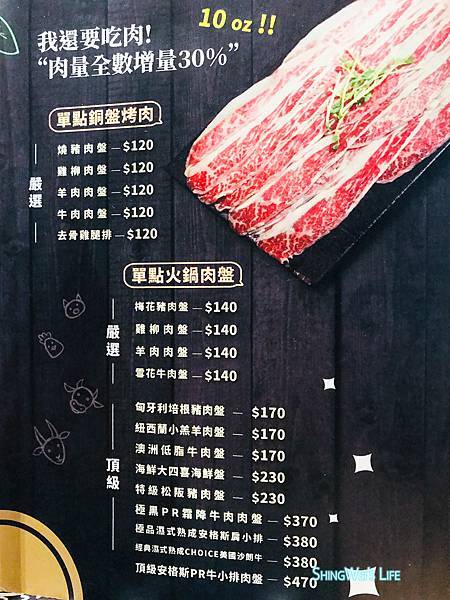 10 oz !!
我還要吃肉!
“肉量全數增量30%”
單點銅盤烤肉
嚴選
燒豬肉盤 — $120
雞柳肉盤 — $120
羊肉肉盤 — $120
牛肉肉盤 — $120
去骨雞腿排 — $120
單點火鍋肉盤
嚴選
梅花豬肉盤 — $140
雞柳肉盤 — $140
羊肉肉盤 — $140
雪花牛肉盤 — $140
頂級
匈牙利培根豬肉盤 — $170
紐西蘭小羔羊肉盤 — $170
澳洲低脂牛肉盤 — $170
海鮮大四喜海鮮盤 — $230
特級松阪豬肉盤 — $230
極黑PR霜降牛肉肉盤 — $370
極品濕式熟成安格斯肩小排 — $380
經典濕式熟成CHOICE美國沙朗牛 — $380
頂級安格斯PR牛小排肉盤 — $470
LIFE